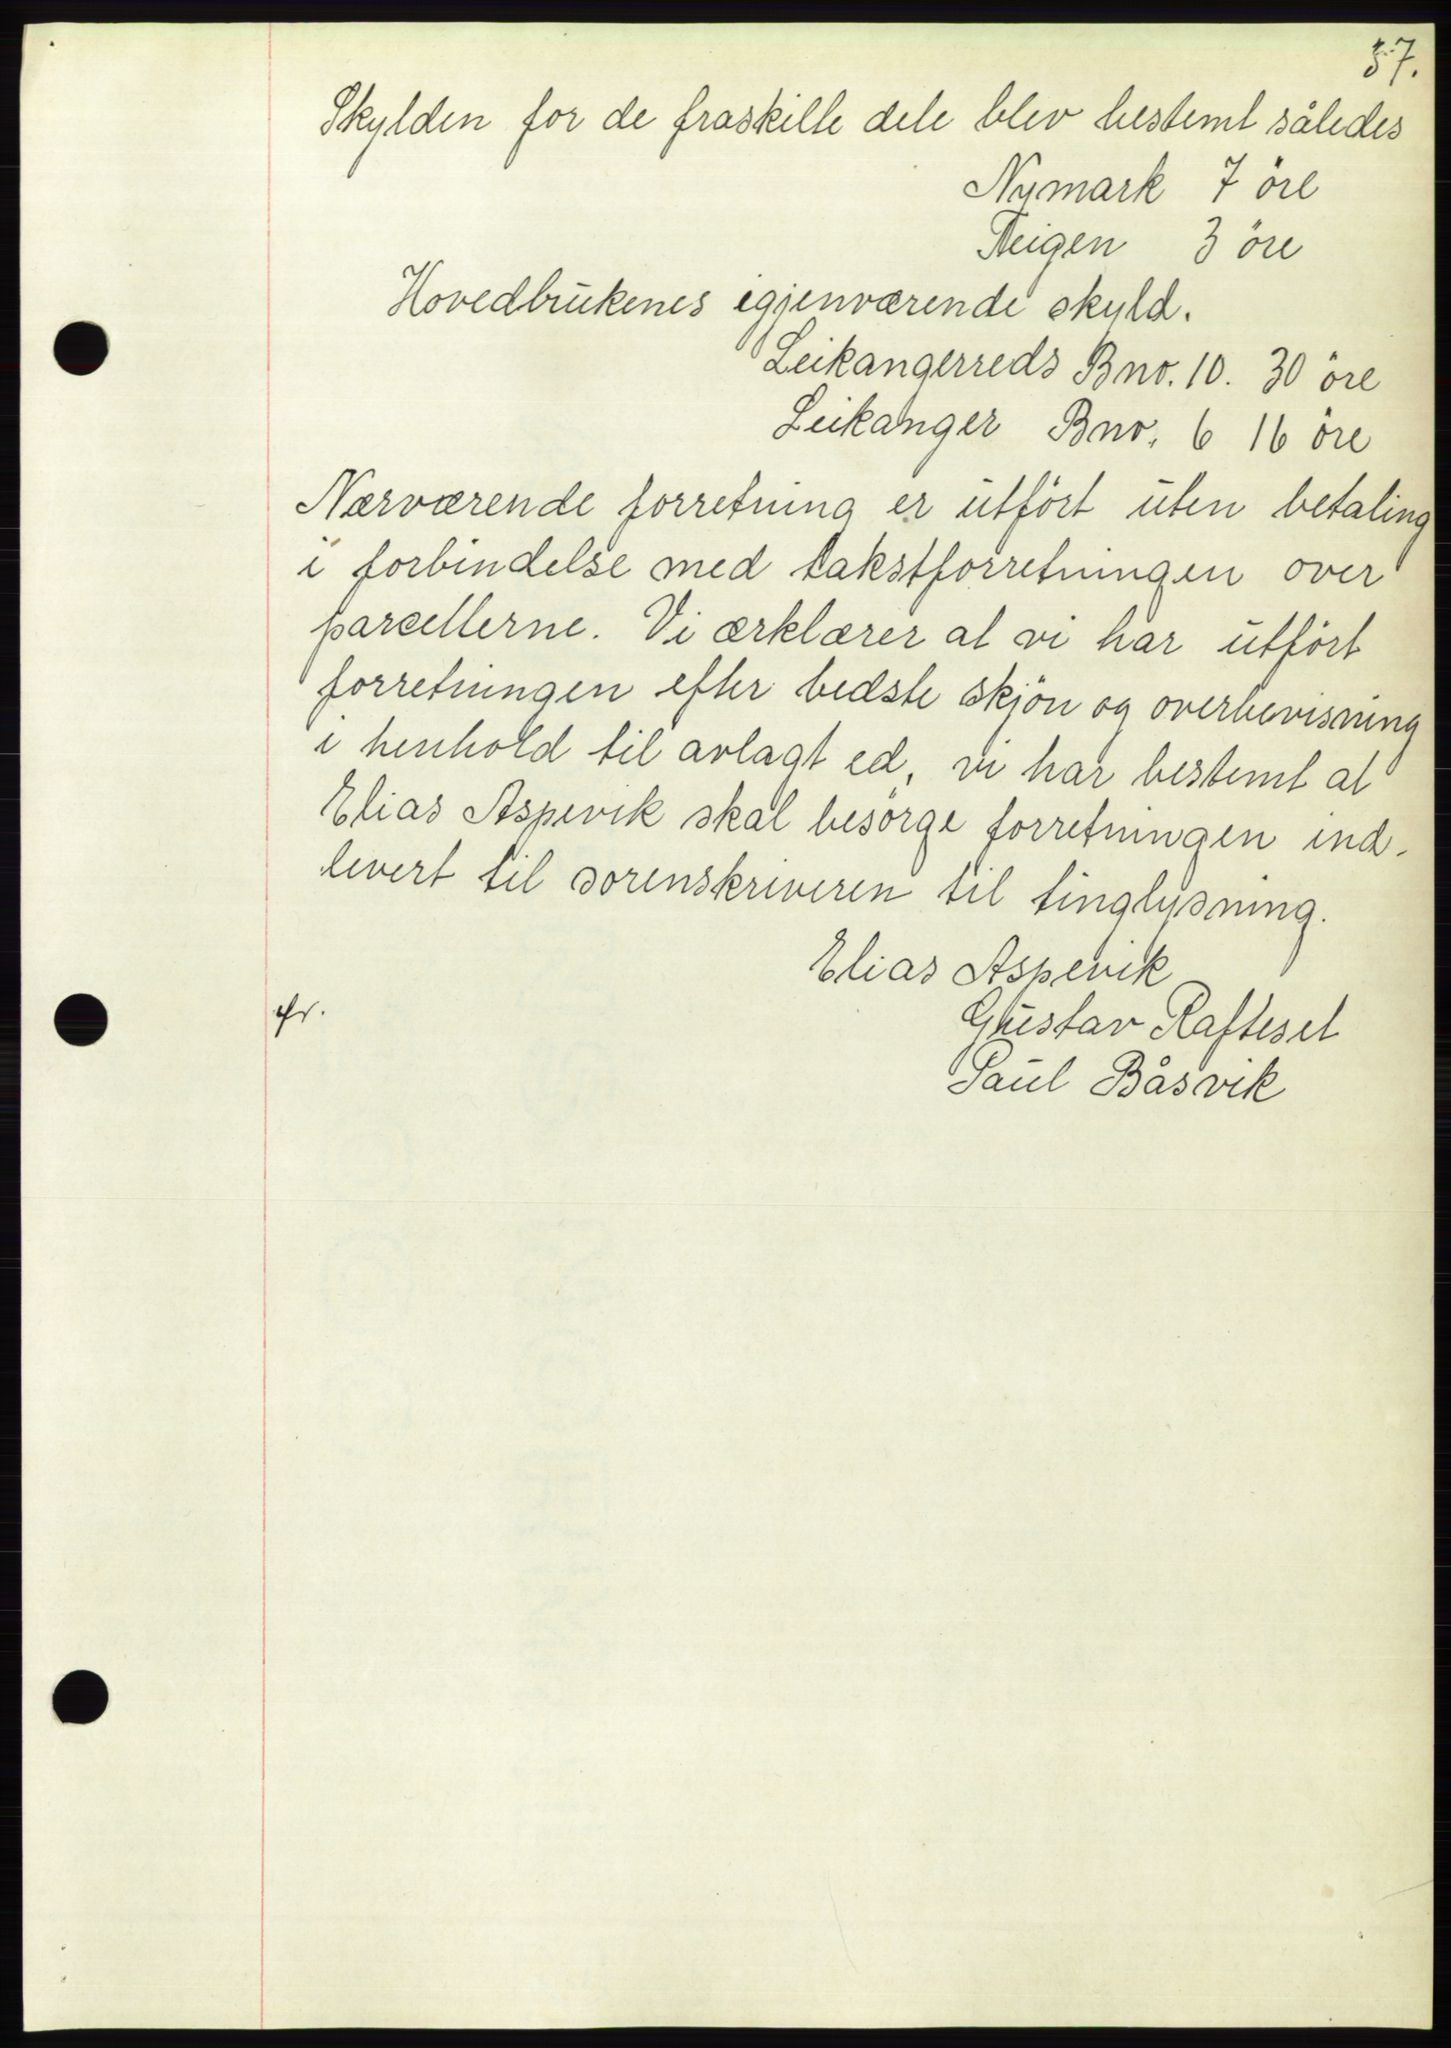 57.
Skylden for de fraskilte dele blev bestemt således
Nymark 7 öre
Teigen 3 öre
Hovedbrukenes igjenværende skyld.
Leikangerreds Bno. 10. 30 öre
Leikanger Bno. 6 16 öre
Nærværende forretning er utfört uten betaling
i forbindelse med takstforretningen over
parcellerne. Vi ærklærer at vi har utfört
forretningen efter bedste skjön og overbevisning
i henhold til avlagt ed, vi har bestemt at
Elias Aspevik skal besörge forretningen ind-
levert til sorenskriveren til tinglysning.
Elias Aspevik
Gustav Rafteset
Paul Båsvik